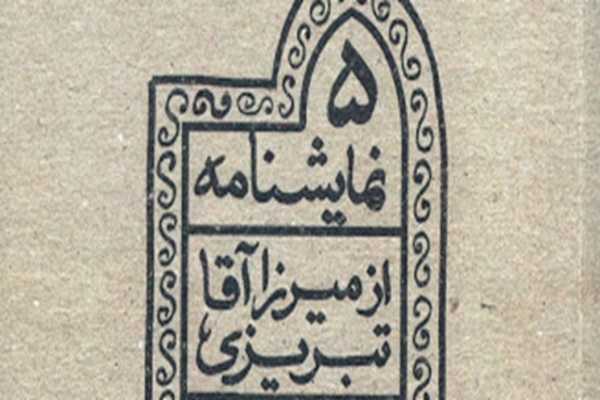 ۵
نمایشنامه
از میرزا آقا
تبریزی